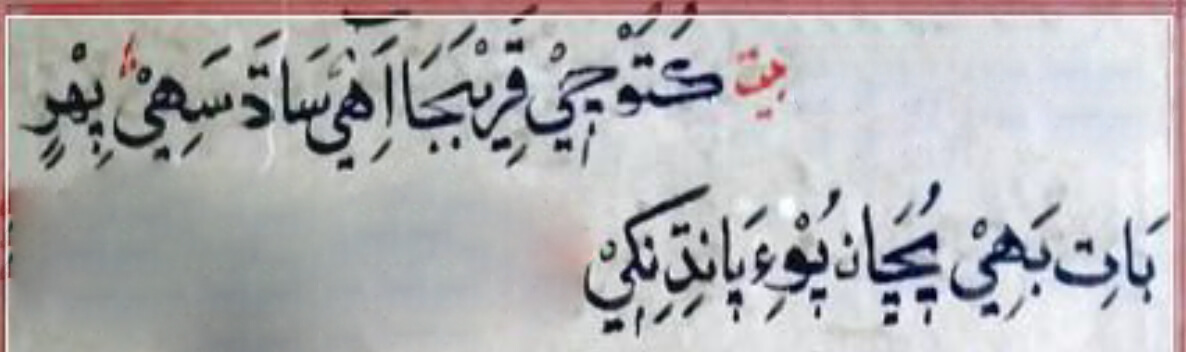 بيت كَتَوْ جِيْ قَرِيْبَجَا اَهِيْ سَادَّ سَهِيْ پِهْرٍ
بَاتِ بَهِيْ پُڇَان پُوْءِ پَانِدِّنِكِيْ